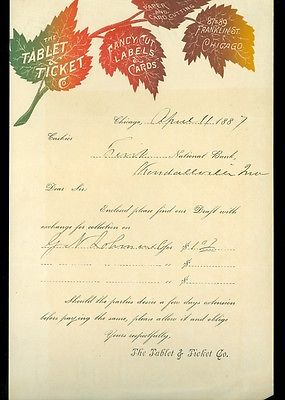 THE
TABLET
&
TICKET
Co.
FANCY CUT
LABELS
&
CARDS
PAPER
AND
CARD CUTTING
87 & 89
FRANKLIN ST.
CHICAGO.
Chicago, April 11 1887
Cashier
First National Bank,
Kendallville Ind
Dear Sir
Enclosed please find our Draft with
exchange for collection on
G. N. & Co $1
" " $
" " $
Should the parties desire a few days extension
before paying the same, please allow it and oblige
Yours respectfully,
The Tablet & Ticket Co.